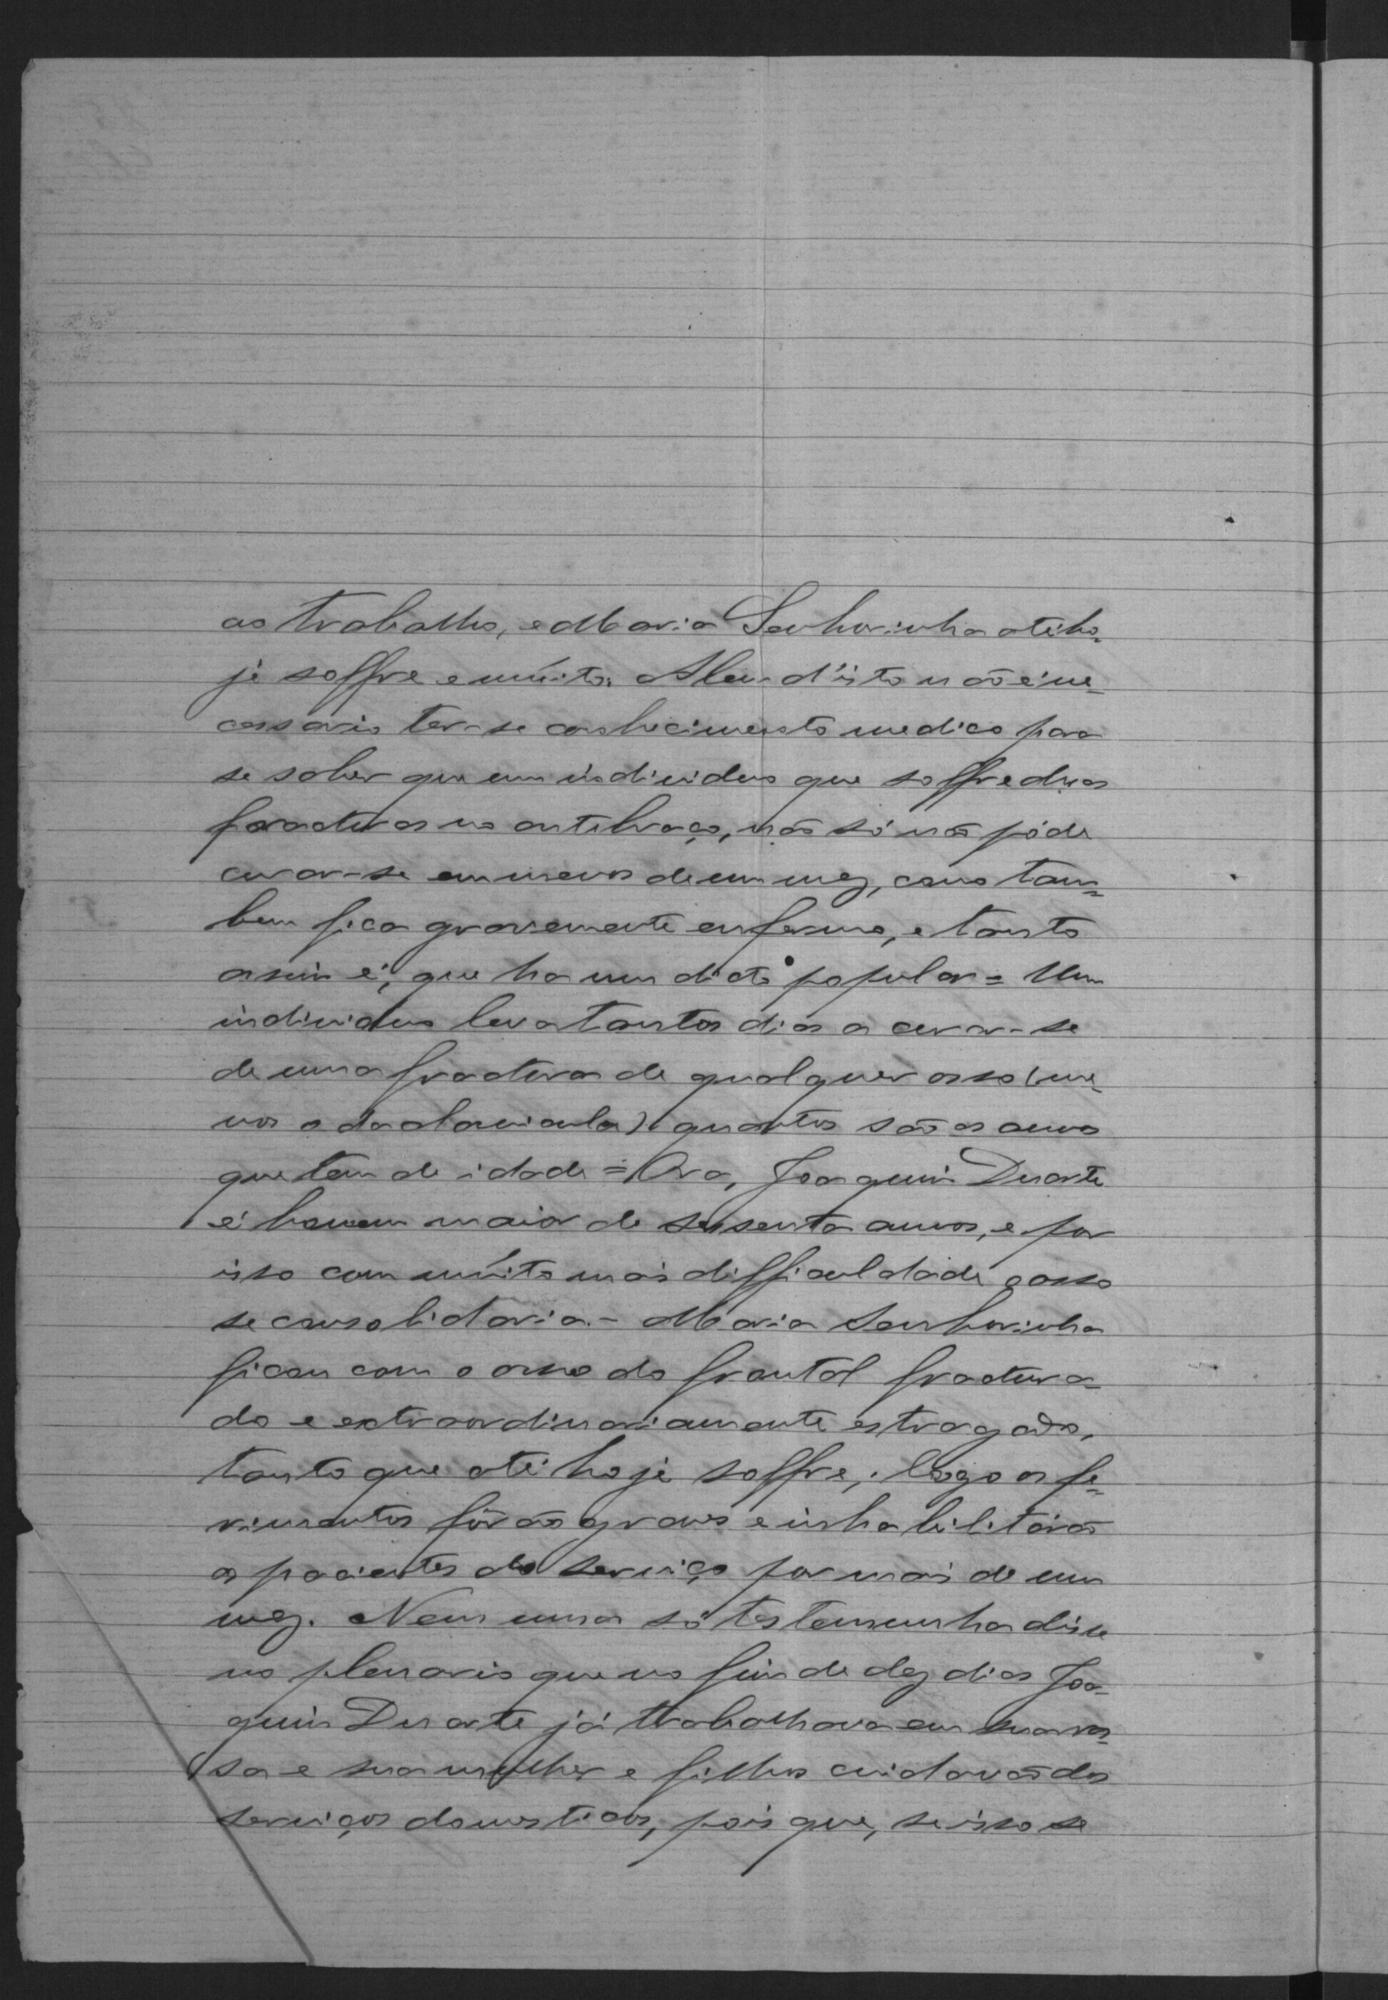 ao trabalho, e Maria Senhorinha até ho-
je soffre e muito. Alem d'isto não é ne-
cessario ter-se conhecimento medico para
se saber que um individuo que soffre duas
fracturas no antebraço, não só não póde
curar-se em menos de um mez, como tam-
bem fica gravemente enfermo, e tanto
assim é, que ha um dicto popular = Um
individuo leva tantos dias a curar-se
de uma fractura de qualquer osso (me-
nos o da clavicula) quantos são os annos
que tem de idade = Ora, Joaquim Duarte
é homem maior de sessenta annos, e por
isso com muito mais difficuldade o osso
se consolidaria. - Maria Senhorinha
ficou com o osso do frontal fractura-
do e extraordinariamente estragado,
tanto que até hoje soffre; logo os fe-
rimentos fôrão graves e inhabilitárão
os pacientes do serviço por mais de um
mez. Nem uma só testemunha disse
no plenario que no fim de dez dias Joa-
quim Duarte já trabalhava em sua ro-
sa e sua mulher e filhos cuidavão dos
serviços domesticos, pois que, se isso se